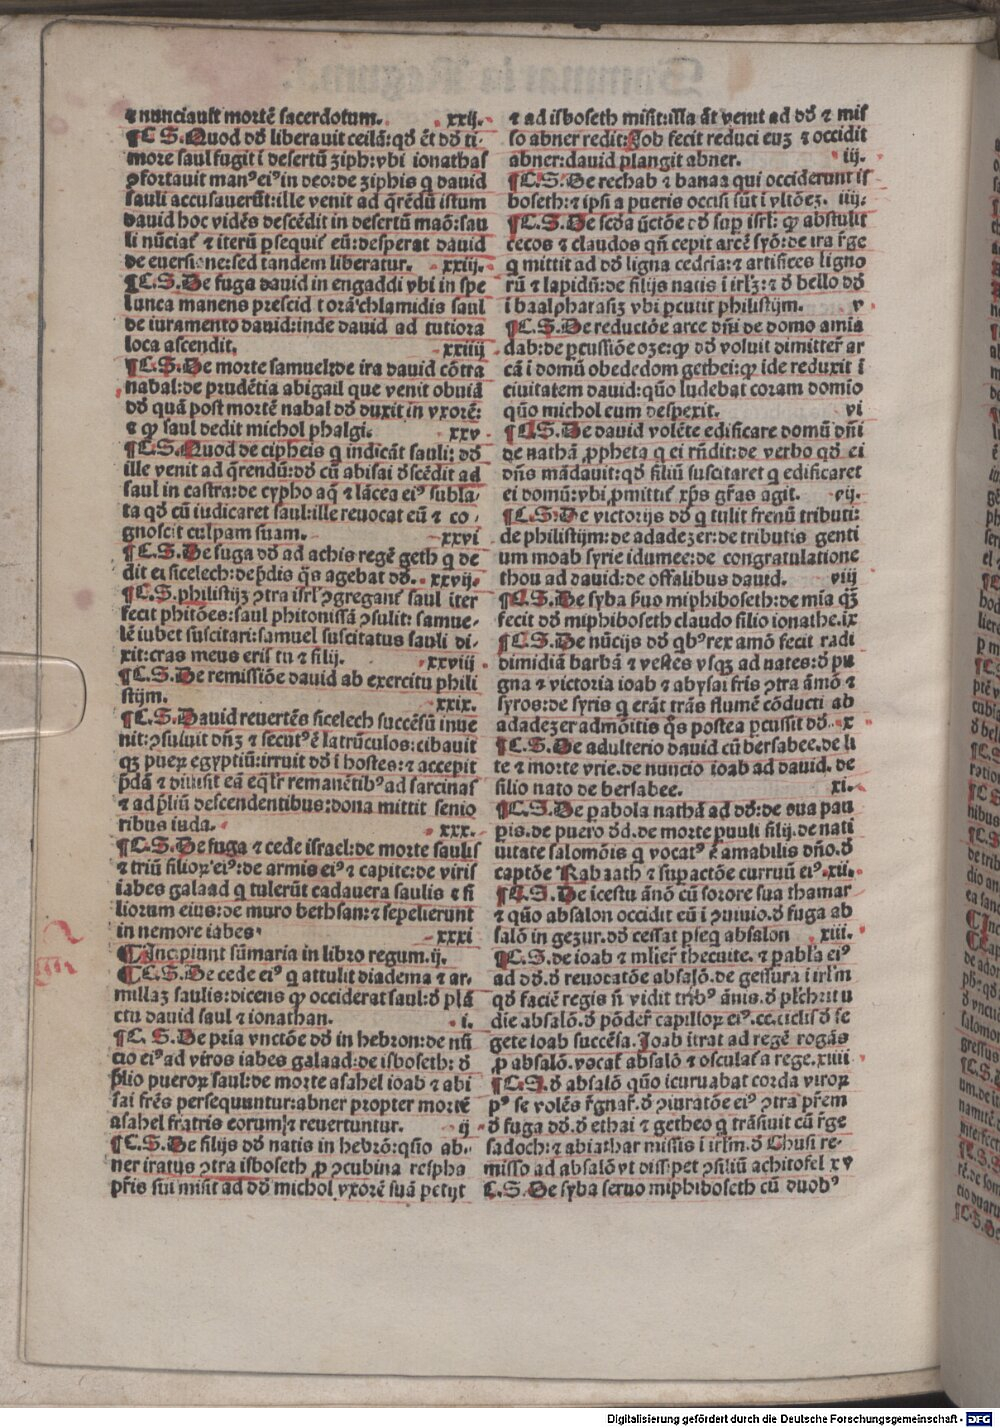 ⁊ nunciauit mortē sacerdotum. xxij.
¶C S. Quod dd̄ liberauit ceilā: qđ ēt dd̄ ti-
more saul fugit ī desertū ziph: vbi ionathas
ꝯfortauit manꝰ eiꝰ in deo: de ziphis q̄ dauid
sauli accusauerūt: ille venit ad q̄rēdū istum
dauid hoc vidēs descēdit in desertū maō: sau
li nūciaꝉ ⁊ iterū ꝑsequiꝉ eū: desperat dauid
de euersione: sed tandem liberatur. xxiij.
¶C.S. De fuga dauid in engaddi vbi in spe
lunca manens prescid t orā chlamidis saul
de iuramento dauid: inde dauid ad tutiora
loca ascendit. xxiiij
¶C.S. De morte samuel: de ira dauid cōtra
nabal: de prudētia abigail que venit obuiā
dd̄ quā post mortē nabal dd̄ duxit in vxorē:
⁊ ꝙ saul dedit michol phalgi. xxv
¶C.S. Quod de cipheis q̄ indicāt sauli: dd̄
ille venit ad q̄rendū: dd̄ cū abisai dscēdit ad
saul in castra: de cypho aq̄ ⁊ lācea eiꝰ subla-
ta qđ cū iudicaret saul: ille reuocat eū ⁊ co-
gnoscit culpam suam. xxvi
¶C.S. De fuga dd̄ ad achis regē geth q̄ de
dit ei sicelech: de p̄dis q̄s agebat dd̄. xxvij.
¶C.S. philistijꝫ ꝯtra isrl ꝯgreganꝉ saul iter
fecit phitōes: saul phitonissā ꝯsulit: samue-
lē iubet suscitari: samuel suscitatus sauli di-
xit: cras meus eris tu ⁊ filij. xxviij
¶C.S. De remissiōe dauid ab exercitu phili
stijm. xxix.
¶C.S. Dauid reuertēs sicelech succēsū inue
nit: ꝯsuluit dn̄ꝫ ⁊ secutꝰ ē latrūculos: cibauit
qꝫ pueꝝ egyptiū: irruit dd̄ ī hostes: ⁊ accepit
p̄dā ⁊ diuisit eā eqlꝉ remanētibꝰ ad sarcinas
⁊ ad p̄liū descendentibus: dona mittit senio
ribus iuda. xxx.
¶C.S. De fuga ⁊ cede israel: de morte saulis
⁊ triū filioꝝ eiꝰ: de armis eiꝰ ⁊ capite: de viris
iabes galaad q̄ tulerūt cadauera saulis ⁊ fi
liorum eius: de muro bethsan: ⁊ sepelierunt
in nemore iabes. xxxi
¶Incipiunt sūmaria in libro regum.ij.
¶C.S. De cede eiꝰ q̄ attulit diadema ⁊ ar-
millaꝫ saulis: dicens ꝙ occiderat saul: d̄ plā
ctu dauid saul ⁊ ionathan. i.
¶C. S. De pria vnctōe dd̄ in hebron: de nū
cio eiꝰ ad viros iabes galaad: de isboseth: d̄
p̄lio pueroꝝ saul: de morte asahel ioab ⁊ abi
sai frēs persequuntur: abner propter mortē
asahel fratris eorum ⁊ reuertuntur. ij
¶C.S. De filijs dd̄ natis in hebrō: qūo ab-
ner iratus ꝯtra isboseth ꝓ ꝯcubina respha
pr̄is sui misit ad dd̄ michol vxorē suā petijt
⁊ ad isboseth misit: illa āt venit ad dd̄ ⁊ mis
so abner redit: Job fecit reduci euꝫ ⁊ occidit
abner: dauid plangit abner. iij.
¶C.S. De rechab ⁊ banaa qui occiderunt is
boseth: ⁊ ipsi a pueris occisi sūt ī vltiōeꝫ. iiij.
¶C.S. De scđa vnctōe dd̄ suꝑ isrl: ꝙ abstulit
cecos ⁊ claudos qn̄ cepit arcē syō: de ira r̄ge
q̄ mittit ad dd̄ ligna cedria: ⁊ artifices ligno
rū ⁊ lapidū: de filijs natis ī irlꝫ: ⁊ d̄ bello dd̄
ī baalpharasiꝫ vbi ꝑcutit philistijm. v
¶C.S. De reductōe arce dn̄i de domo amia
dab: de ꝑcussiōe oze: ꝙ dd̄ voluit dimitteꝉ ar
cā ī domū obededom gethei: ꝙ īde reduxit ī
ciuitatem dauid: qūo ludebat coram domīo
qūo michol eum despexit. vi
¶C.S. De dauid volēte edificare domū dn̄i
de nathā ꝓpheta q̄ ei rn̄dit: de verbo qđ ei
dn̄s mādauit: qđ filiū suscitaret q̄ edificaret
ei domū: vbi ꝓmittiꝉ xp̄s gr̄as agit. vij.
¶C.S. De victorijs dd̄ q̄ tulit frenū tributi:
de philistijm: de adadezer: de tributis genti
um moab syrie idumee: de congratulatione
thou ad dauid: de offalibus dauid. viij
¶C.S. De syba ꝑuo miphiboseth: de mīa qꝫ
fecit dd̄ miphiboseth claudo filio ionathe. ix
¶C.S. De nūcijs dd̄ qbꝰ rex amō fecit radi
dimidiā barbā ⁊ vestes vsqꝫ ad nates: d̄ pu
gna ⁊ victoria ioab ⁊ abysai fris ꝯtra āmō ⁊
syros: de syris q̄ erāt trās flumē cōducti ab
adadezer admōitis q̄s postea ꝑcussit dd̄. x
¶C.S. De adulterio dauid cū bersabee. de li
te ⁊ morte vrie. de nuncio ioab ad dauid. de
filio nato de bersabee. xi.
¶C.S. De ꝑabola nathā ad dd̄: de oua pau
ꝑis. de puero d̄d. de morte ꝑuuli filij. de nati
uitate salomōis q̄ vocatꝰ ē amabilis dn̄o. d̄
captōe Rabaath ⁊ supactōe curruū eiꝰ. xij.
¶C.S. De icestu āmō cū sorore sua thamar
⁊ qūo absalon occidit eū ī ꝯuiuio. d̄ fuga ab
salō in gezur. dd̄ cessat ꝑseq absalon xiij.
¶C.S. de ioab ⁊ mlier̄ thecuite. ⁊ ꝑabla eiꝰ
ad dd̄. d̄ reuocatōe absalō. de gessura ī irlm
qđ faciē regis n̄ vidit tribꝰ ānis. d̄ plchritu
die absalō. d̄ pōder̄ capilloꝝ eiꝰ. cc. siclis d̄ se
gete ioab succēsa. Joab ītrat ad regē rogās
ꝓ absalō. vocaꝉ absalō ⁊ osculaꝉ a rege. xiiij
¶C.S. d̄ absalō qūo icuruabat corda viroꝝ
pꝰ se volēs r̄gnaꝉ. d̄ ꝯiuratōe eiꝰ ꝯtra pr̄em
d̄ fuga dd̄. d̄ ethai ⁊ getheo q̄ trāsiuit cū r̄ge
sadoch: ⁊ abiathar missis ī irlm. d̄ Chusi re-
misso ad absalō vt dissipet ꝯsiliū achitofel xv
C.S. De syba seruo miphiboseth cū duobꝰ
Digitalisierung gefördert durch die Deutsche Forschungsgemeinschaft - DFG